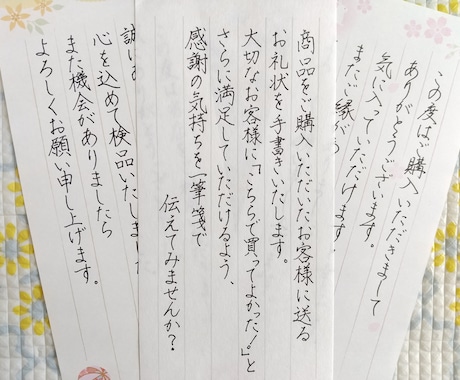 この度はご購入いただきまして
ありがとうございます。
気に入っていただけます
またご縁が
商品をご購入いただいたお客様に送る
お礼状を手書きいたします。
大切なお客様に「こちらで買ってよかった!」と
さらに満足していただけるよう、
感謝の気持ちを一筆箋で
伝えてみませんか?
誠に
心を込めて検品いたしました
また機会がありましたら
よろしくお願い申し上げます。